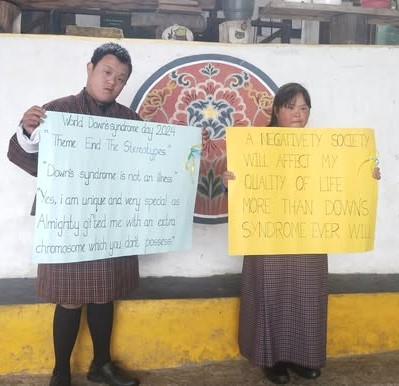 World Down's syndrome day 2024
"Theme End The Stereotypes"
"Down's syndrome is not an illness"
"Yes, i am unique and very special as
Almighty gifted me with an extra
chromosome which you don't possess"
A NEGATIVETY SOCIETY
WILL AFFECT MY
QUALITY OF LIFE
MORE THAN DOWN'S
SYNDROME EVER WILL